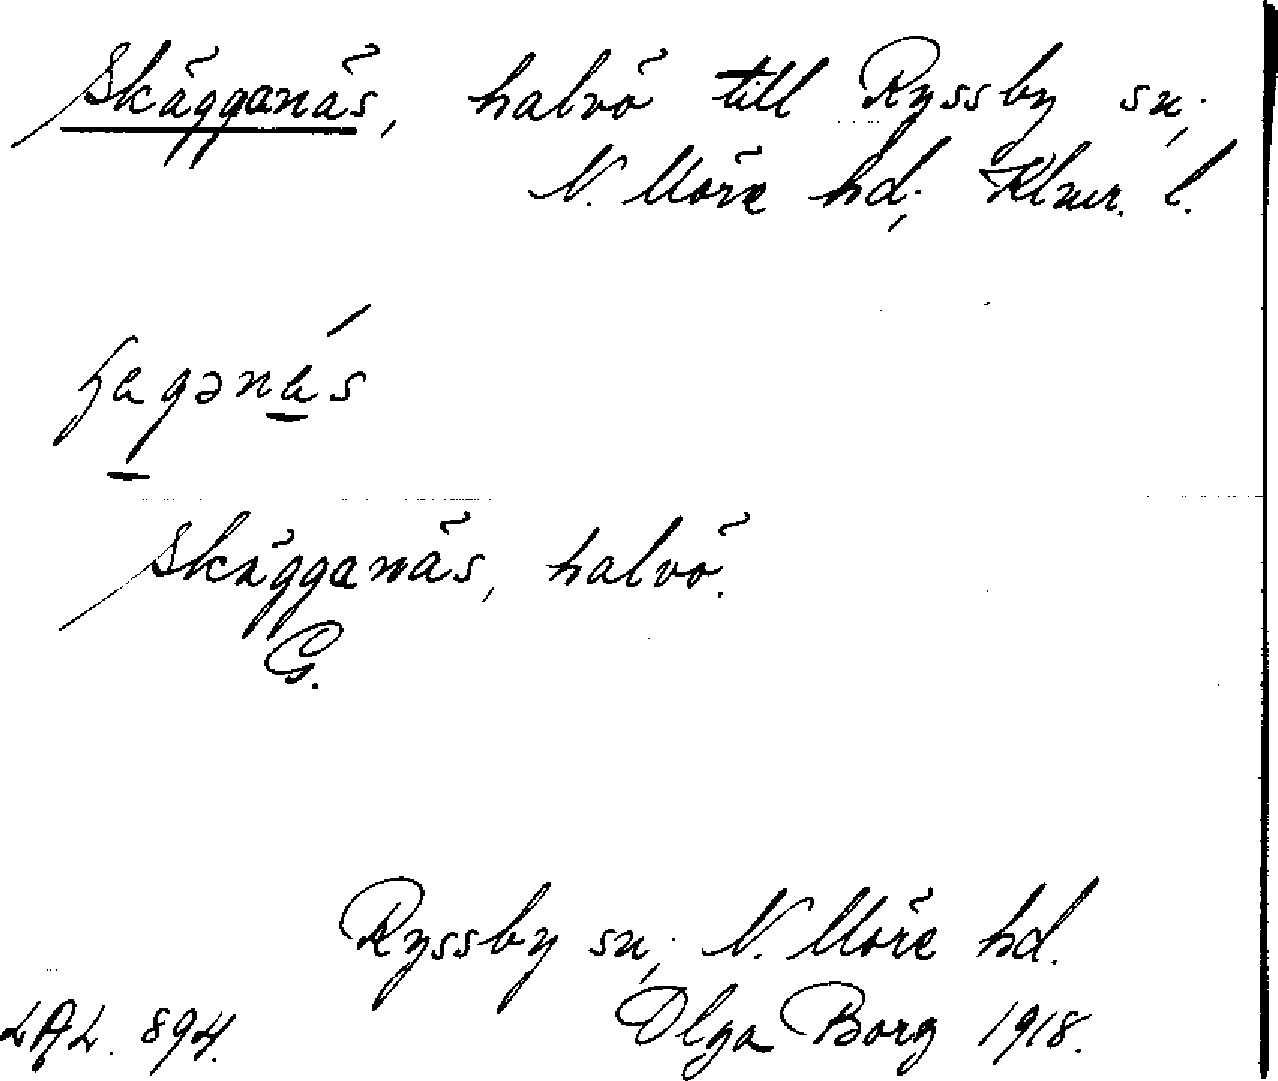 Skägganäs, halvö till Ryssby sn,
N. Möre hd, Klmr. l.
Skägganäs, halvö.
G.
Ryssby sn, N. Möre hd.
LAL. 894. Olga Borg 1918.